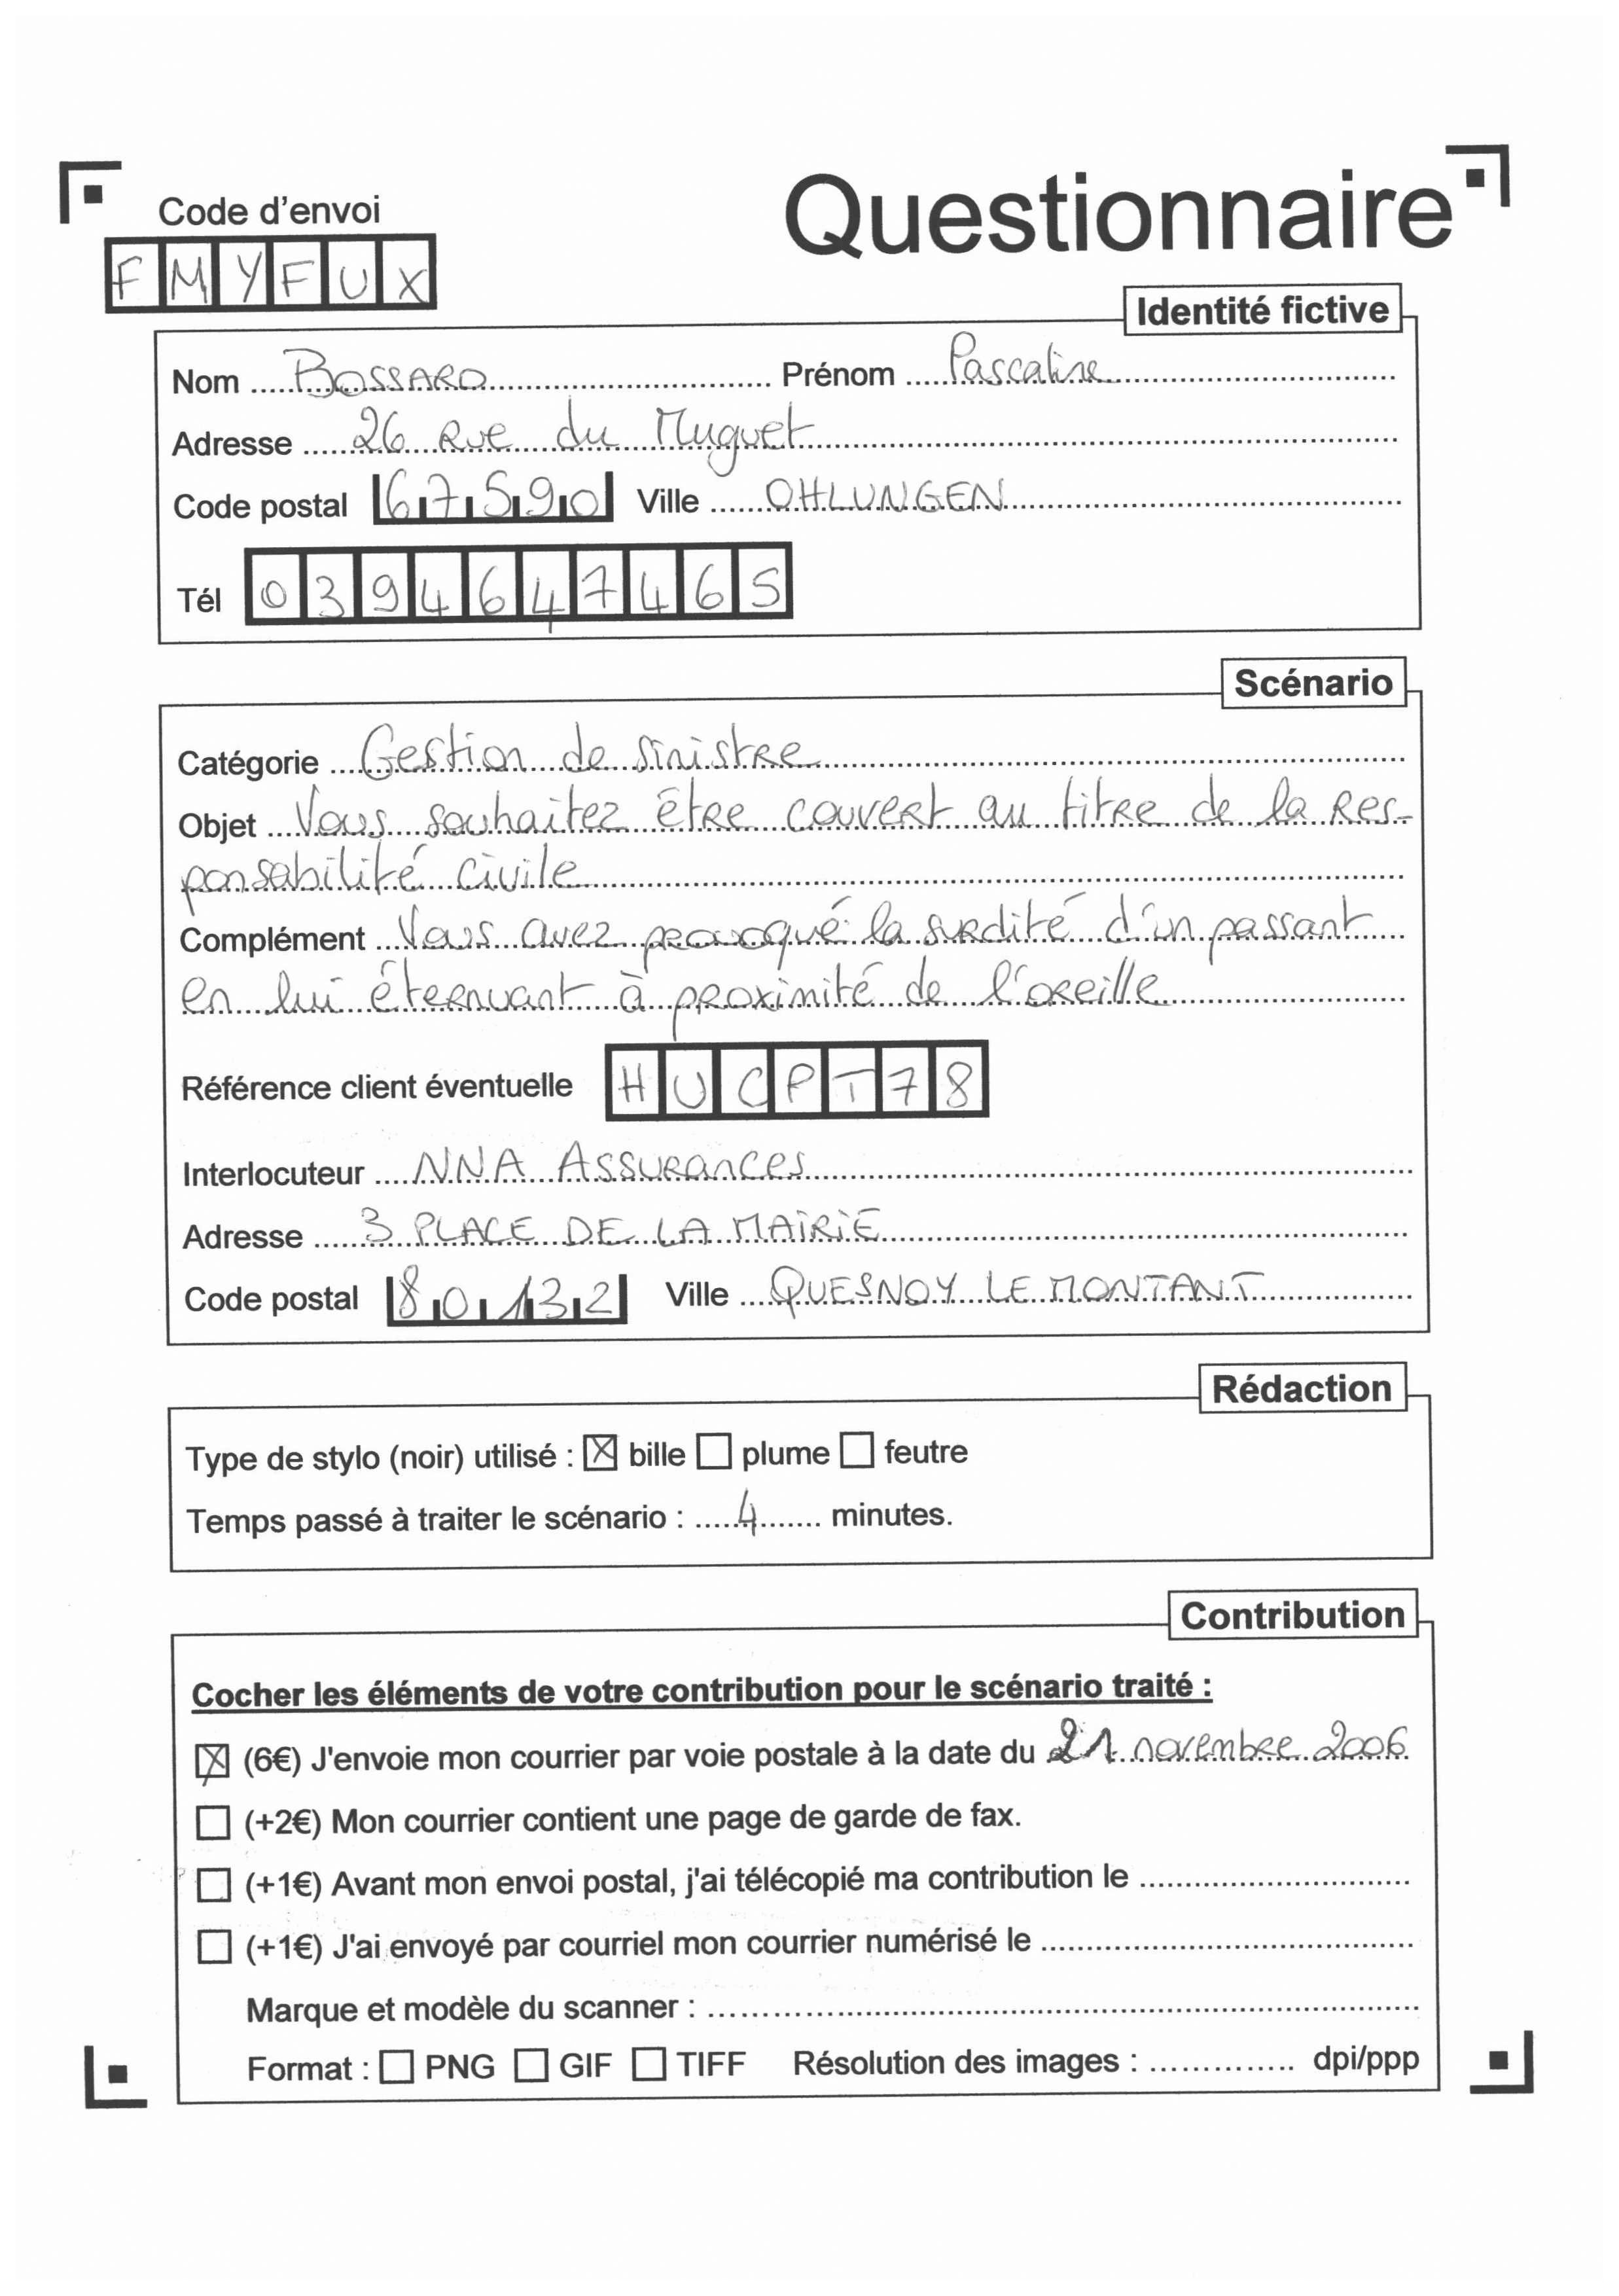 Questionnaire
Code d'envoi
FMYFUX
Identité fictive
Nom BOSSARD Prénom Pascaline
Adresse 26 Rue du Muguet
Code postal 67590 Ville OHLUNGEN
Tél 0394647465
Scénario
Catégorie Gestion de sinistre
Objet Vous souhaitez être couvert au titre de la res-
ponsabilité civile
Complément Vous avez provoqué la surdité d'un passant
en lui éternuant à proximité de l'oreille
Référence client éventuelle HUCPT78
Interlocuteur NNA Assurances
Adresse 3 PLACE DE LA MAIRIE
Code postal 80132 Ville QUESNOY LE MONTANT
Rédaction
Type de stylo (noir) utilisé : ☒ bille ☐ plume ☐ feutre
Temps passé à traiter le scénario : 4 minutes.
Contribution
Cocher les éléments de votre contribution pour le scénario traité :
☒ (6€) J'envoie mon courrier par voie postale à la date du 21 novembre 2006
☐ (+2€) Mon courrier contient une page de garde de fax.
☐ (+1€) Avant mon envoi postal, j'ai télécopié ma contribution le
☐ (+1€) J'ai envoyé par courriel mon courrier numérisé le
Marque et modèle du scanner :
Format : ☐ PNG ☐ GIF ☐ TIFF Résolution des images : dpi/ppp